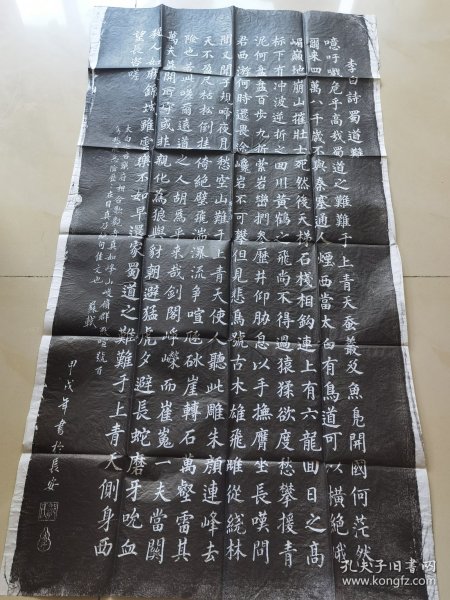 李白詩蜀道難
噫吁嚱危乎高哉蜀道之難難于上青天蚕叢及魚鳧開國何茫然
爾来四萬八千歲不與秦塞通人煙西當太白有鳥道可以橫絕峨
嵋巔地崩山摧壯士死然後天梯石棧相鈎連上有六龍回日之高
标下有冲波逆折之回川黄鶴之飛尚不得過猿猱欲度愁攀援青
泥何盤盤百步九折縈岩巒捫參歷井仰胁息以手撫膺坐長嘆問
君西游何時還畏途巉岩不可攀但見悲鳥號古木雄飛雌從繞林
間又聞子規啼夜月愁空山難于上青天使人聽此雕朱顔連峰去
天不盈尺枯松倒挂倚絕壁飛湍瀑流争喧豗砯崖轉石萬壑雷其
險也若此嗟爾遠道之人胡爲乎来哉劍閣崢嶸而崔嵬一夫當關
萬夫莫開所守或非親化爲狼與豺朝避猛虎夕避長蛇磨牙吮血
殺人如麻錦城雖雲樂不如早還家蜀道之難難于上青天側身西
望長咨嗟
蘇軾
甲戌年書於長安
孔夫子旧書网
www.kongfz.com